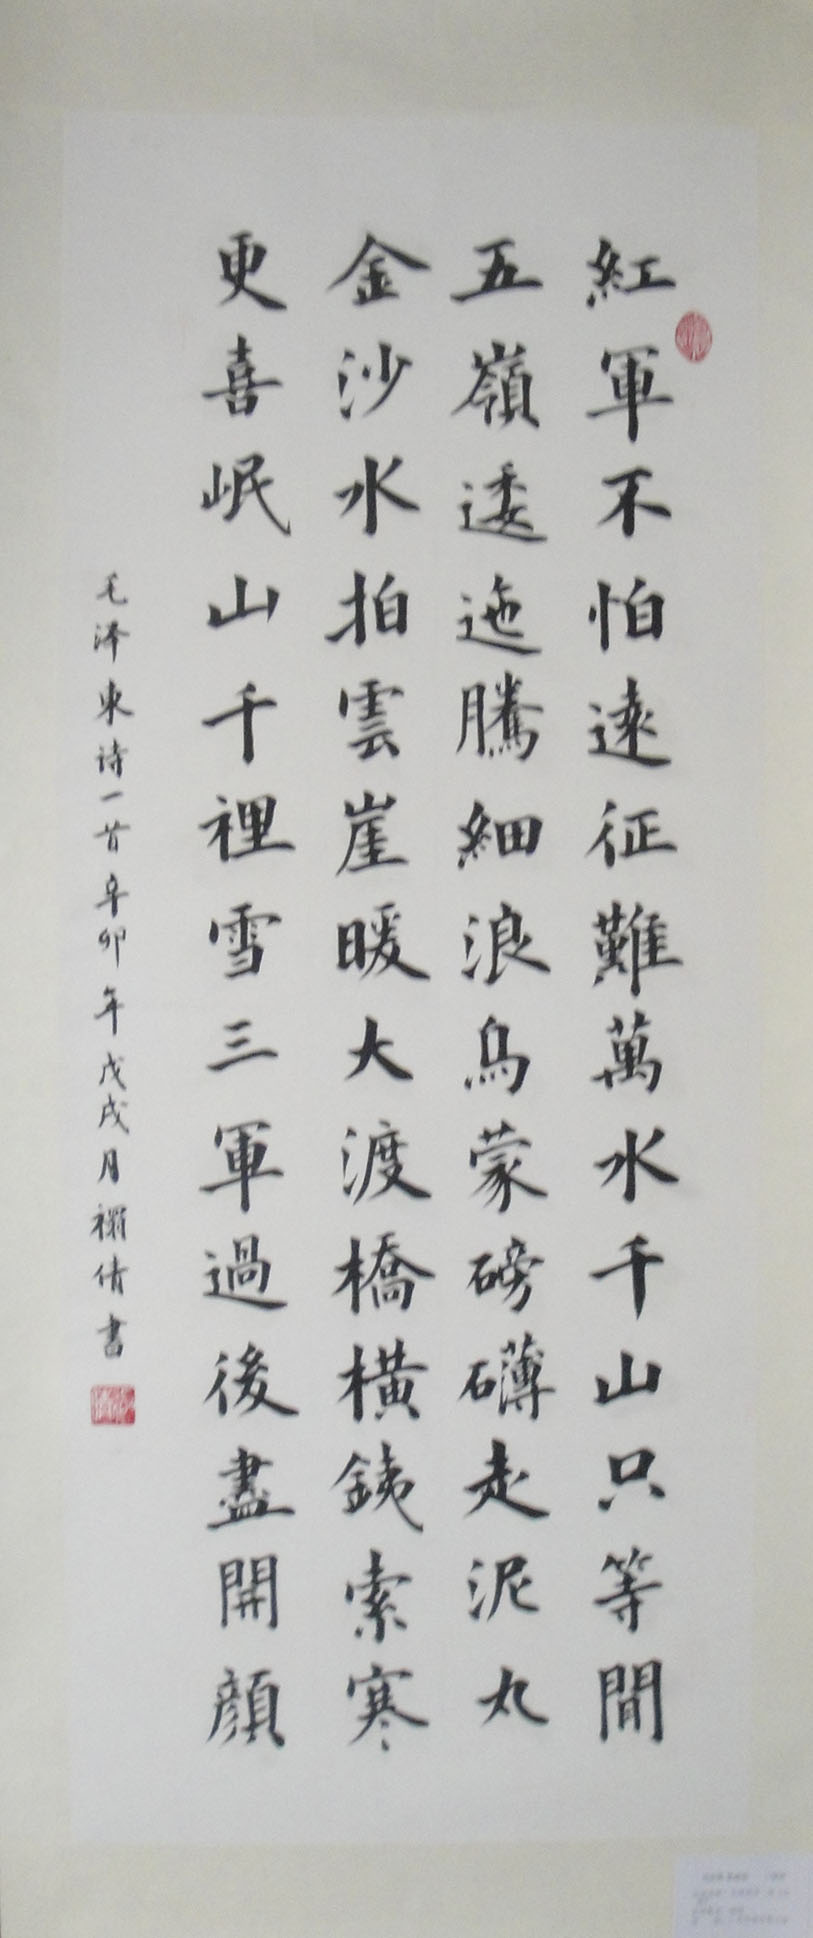 紅軍不怕遠征難萬水千山只等閒
五嶺逶迤騰細浪烏蒙磅礴走泥丸
金沙水拍雲崖暖大渡橋橫銕索寒
更喜岷山千裡雪三軍過後盡開顔
毛泽东诗一首辛卯年戊戌月禤倩書